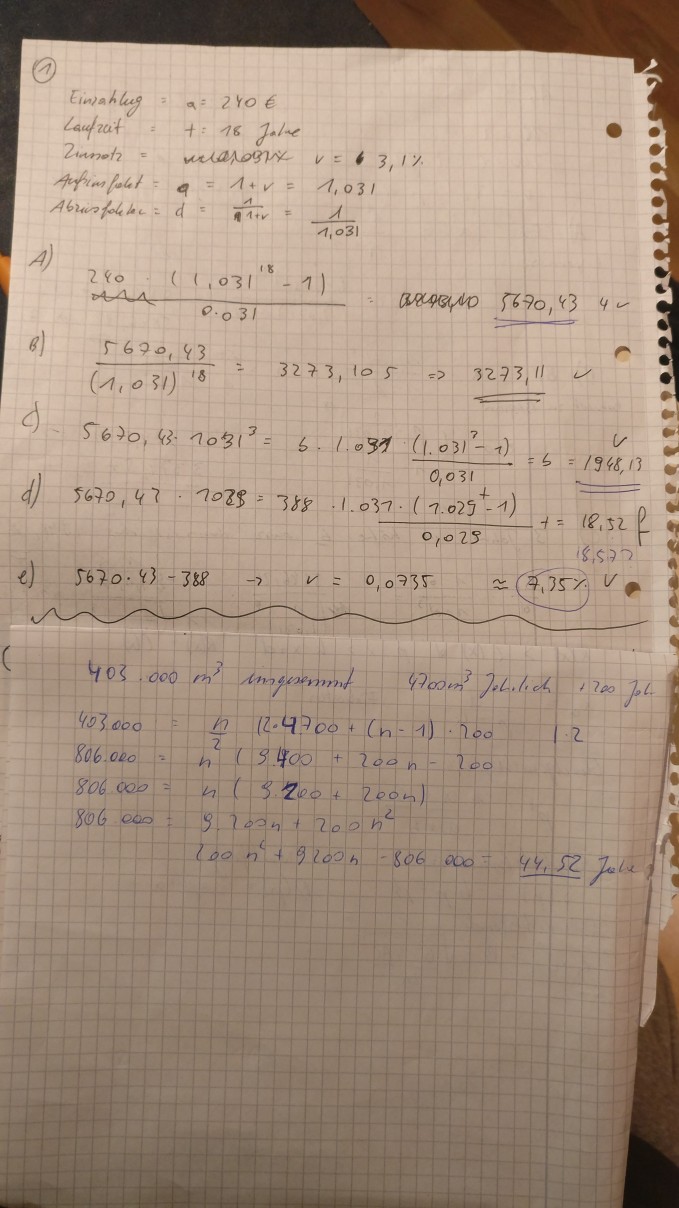 1
Einzahlug = a = 240 €
Laufzeit = t = 18 Jahre
Zinssatz = v = 3,1%
Aufzinsfakt = q = 1+v = 1,031
Abzinsfaktor = d = 1/1+v = 1/1,031
A) 240 · (1,031^18 - 1) / 0.031 = 5670,43 4 ✓
B) 5670,43 / (1,031)^18 = 3273,105 => 3273,11 ✓
c) 5670,43 · 1031^3 = b · 1.031 · (1.031^3 - 1) / 0,031 = b = 1948,13 ✓
d) 5670,43 · 1029 = 388 · 1.031 · (1.029^t - 1) / 0,029 t = 18,52 f
18,577
e) 5670.43 - 388 → v = 0,0735 ≈ 7,35% ✓
403.000 m³ insgesammt 4700m³ Jährlich +200 Jah
403.000 = n/2 (2·4700 + (n-1) · 200 | ·2
806.000 = n (9.400 + 200n - 200
806.000 = n (9.200 + 200n)
806 000 = 9.200n + 200n²
200n² + 9200n - 806 000 = 44,52 Jahre